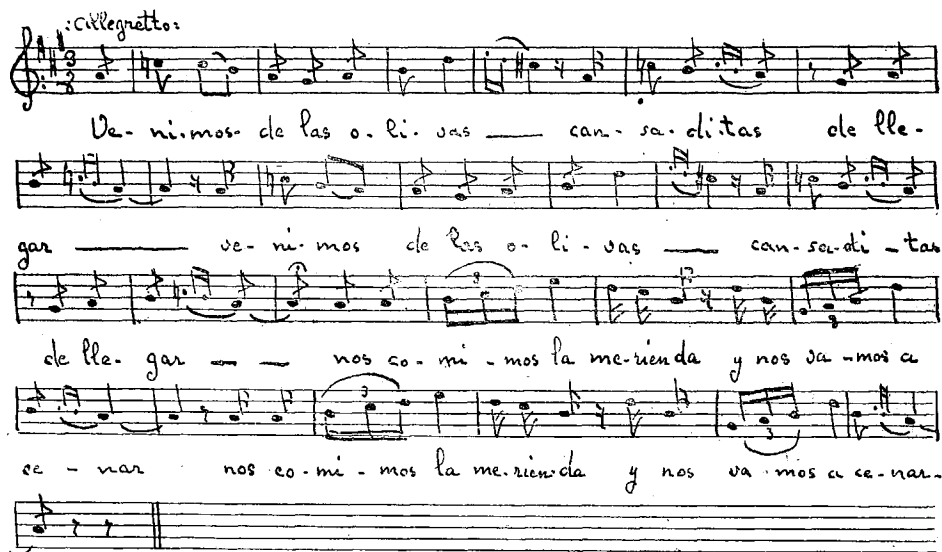 :Allegretto:
3
8
Ve- ni-mos- de las o-li-vas — can-sa-di-tas de lle-
gar — ve-ni-mos de las o-li-vas — can-sa-di-tas
3
de lle-gar — — nos co-mi-mos la me-rienda y nos va-mos a
3
ce-nar nos co-mi-mos la me-rien-da y nos va-mos a ce-nar-
3